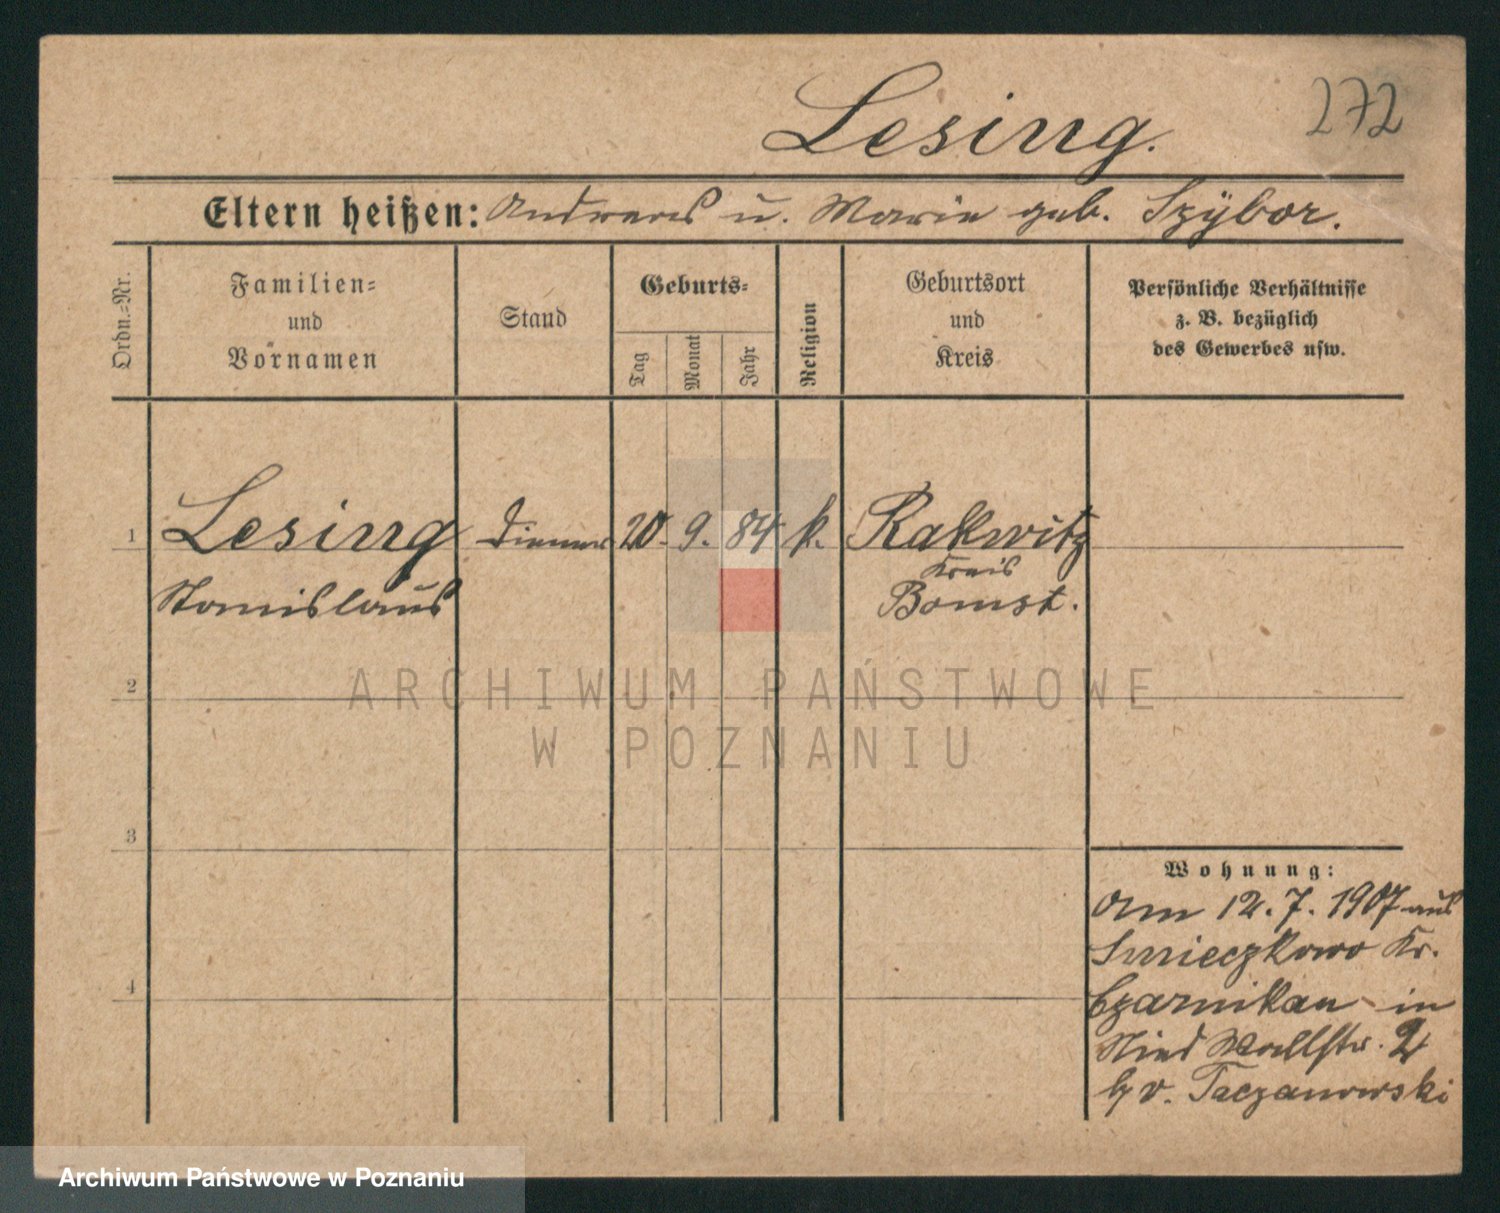 Lesing.
272
Eltern heißen: Andreas u. Marie geb. Szÿbor.
Ordn.-Nr.
Familien-
und
Vornamen
Stand
Geburts-
Tag
Monat
Jahr
Religion
Geburtsort
und
Kreis
Persönliche Verhältnisse
z. B. bezüglich
des Gewerbes usw.
1 Lesing Diener 20. 9. 84 k. Rakwitz
Kreis
Stanislaus Bomst.
2
3
4
Wohnung:
Am 12. 7. 1907 aus
Smieczkowo Kr.
Czarnikau in
Wallstr. 2
v. Taczanowski
ARCHIWUM PAŃSTWOWE
W POZNANIU
Archiwum Państwowe w Poznaniu